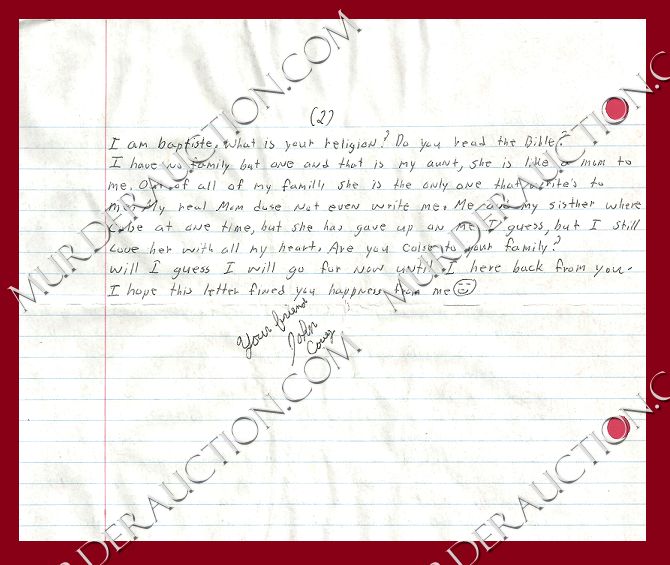 (2)
I am baptiste. What is your religion? Do you read the Bible?
I have no family but one and that is my aunt, she is like a mom to
me. Out of all of my famill, she is the only one that write's to
me. My real Mom dose Not even write me. Me and my sisther where
at one time, but she has gave up on me I guess, but I still
Love her with all my heart. Are you Colse to your family?
Will I guess I will go for Now until I here back from you.
I hope this letter fined you happness from me
Your friend
John
Couey
MURDERAUCTION.COM
MURDERAUCTION.COM
MURDERAUCTION.COM
MURDERAUCTION.COM